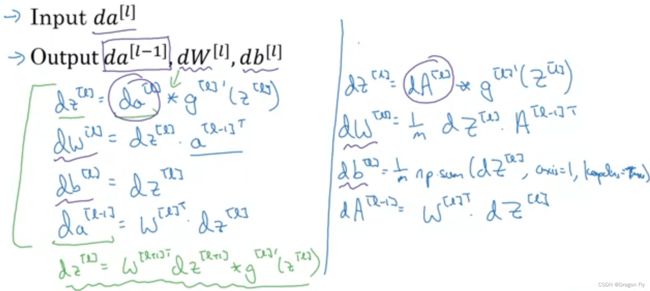 → Input da^[l]
→ Output da^[l-1], dW^[l], db^[l]
dz^[l] = da^[l] * g^[l]'(z^[l])
dW^[l] = dz^[l] · a^[l-1]T
db^[l] = dz^[l]
da^[l-1] = W^[l]T · dz^[l]
dz^[l] = W^[l+1]T dz^[l+1] * g^[l]'(z^[l])
dz^[l] = dA^[l] * g^[l]'(Z^[l])
dW^[l] = 1/m dZ^[l] · A^[l-1]T
db^[l] = 1/m np.sum(dZ^[l], axis=1, keepdims=True)
dA^[l-1] = W^[l]T · dZ^[l]
CSDN @Dragon Fly